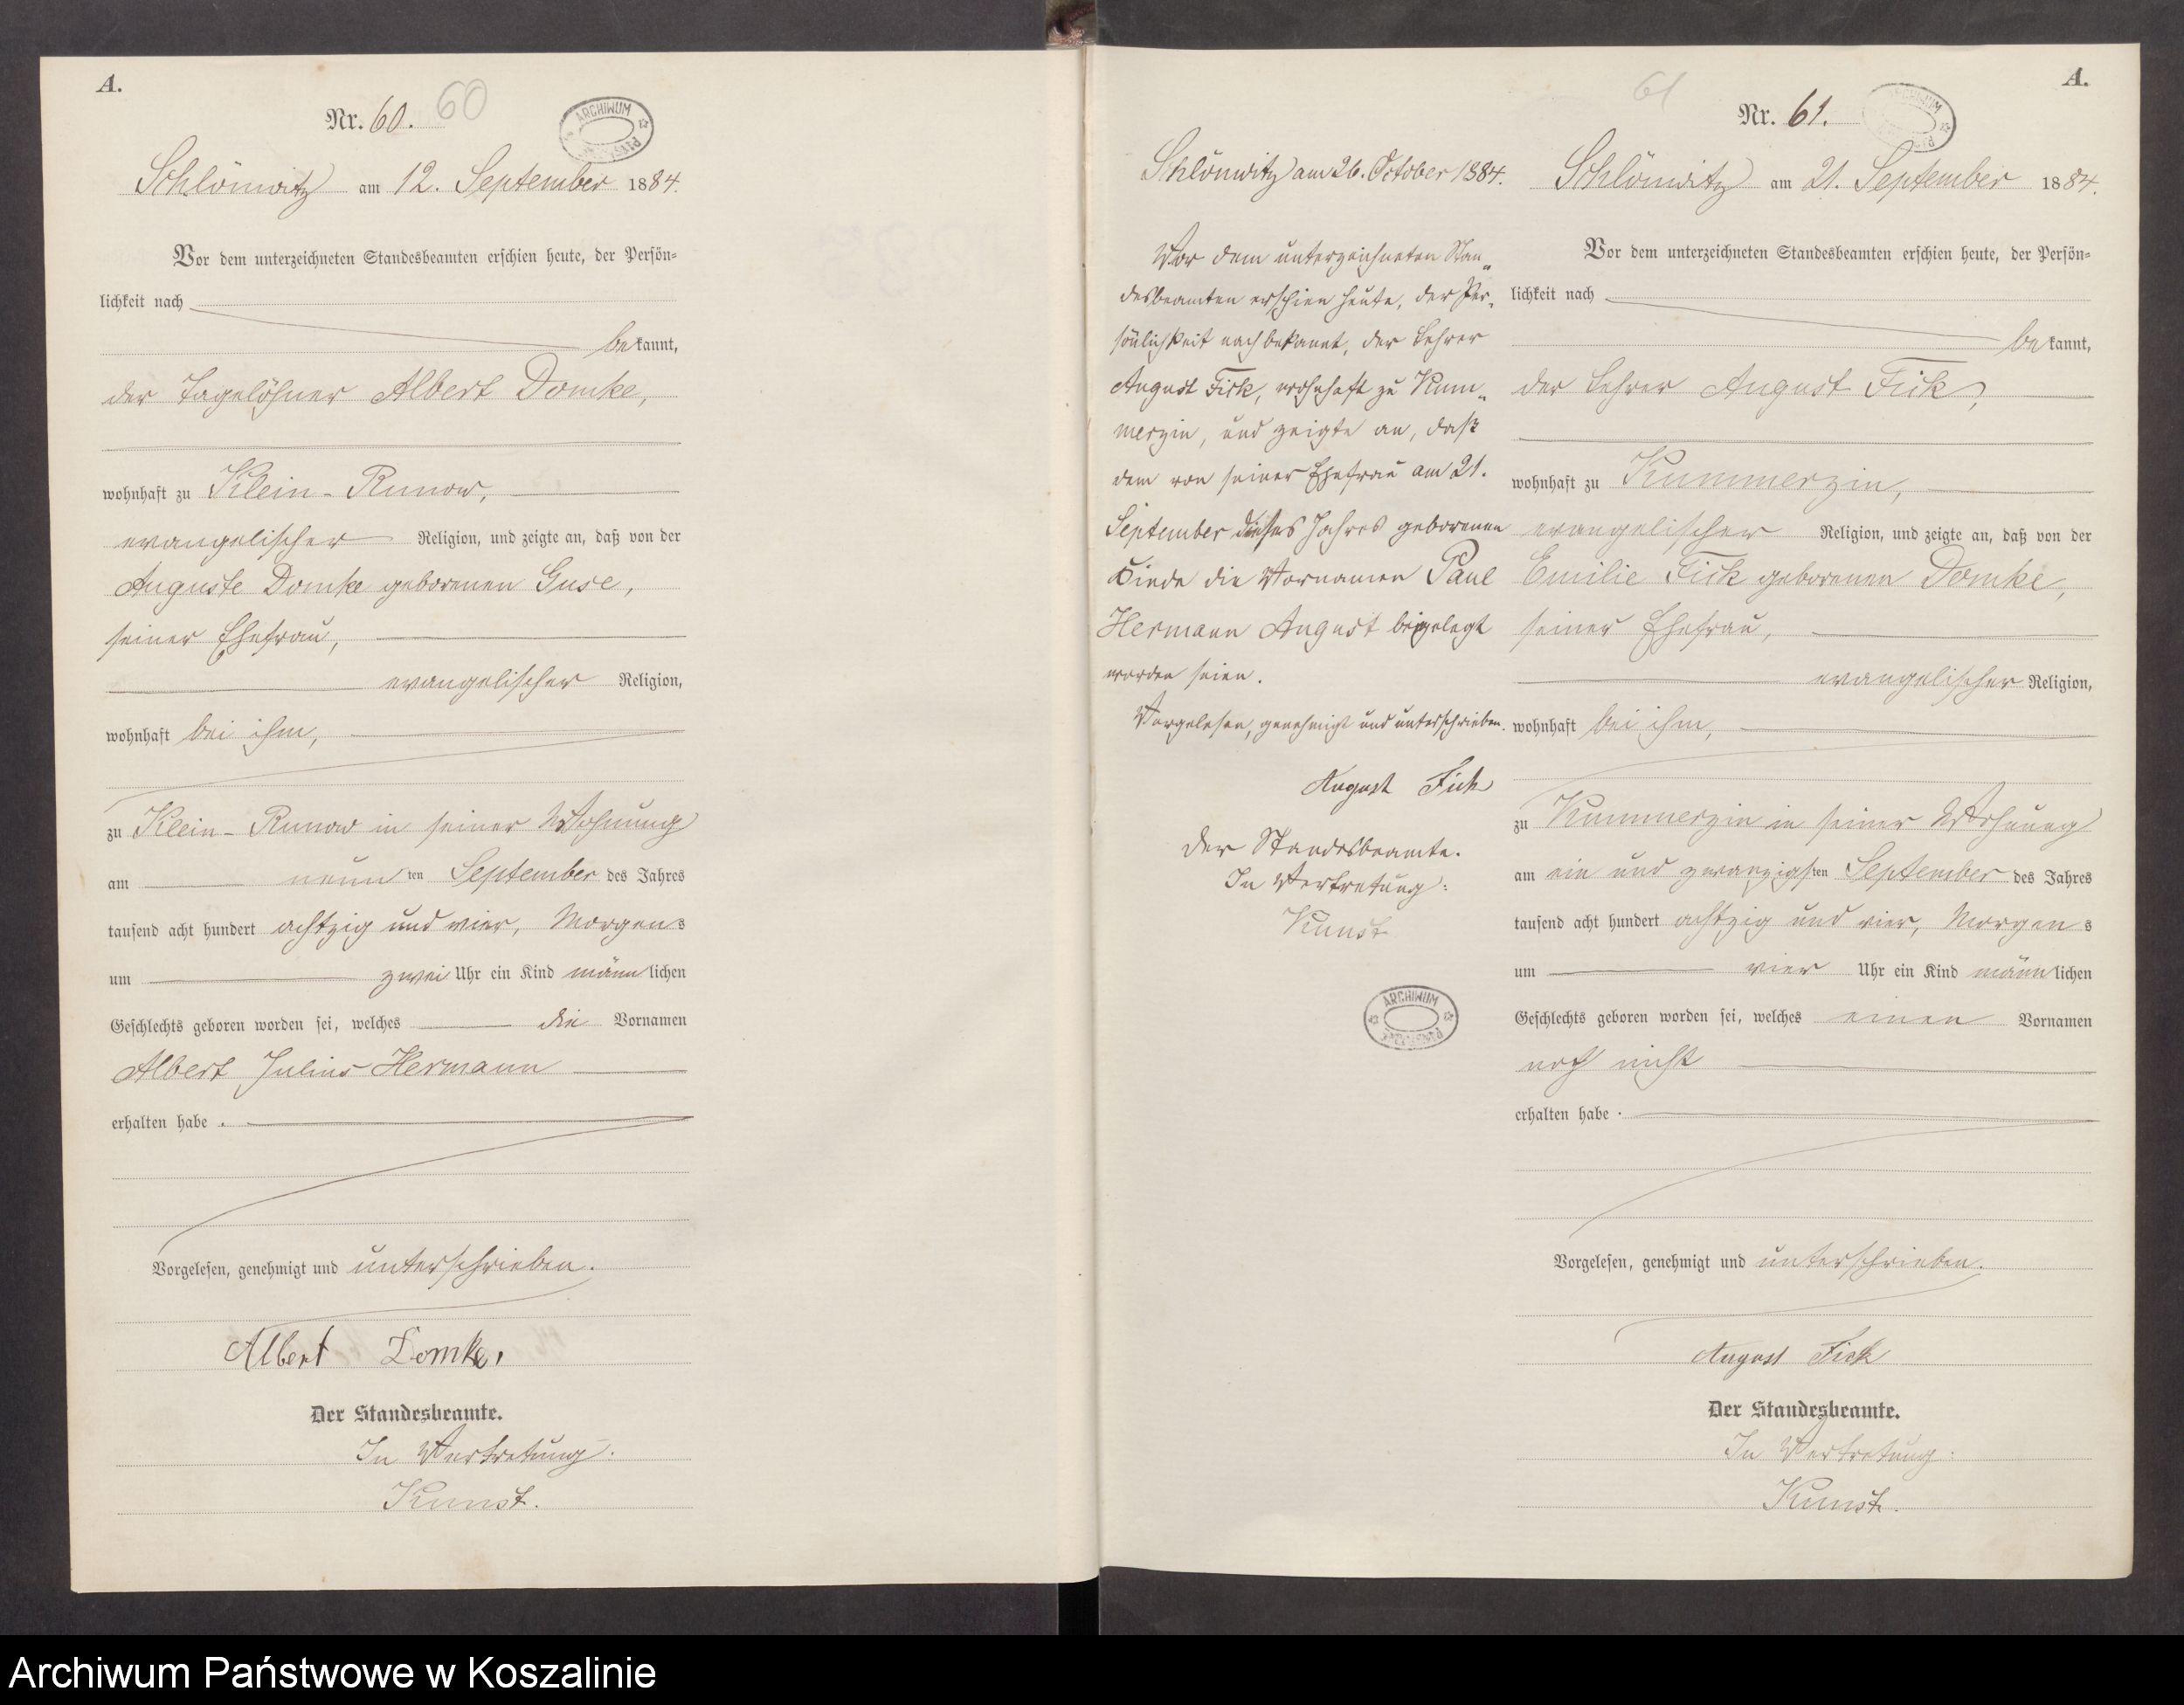 A.
Nr. 60.
60
ARCHIWUM
Schlönwitz am 12. September 1884.
Vor dem unterzeichneten Standesbeamten erschien heute, der Persön=
lichkeit nach
bekannt,
der Tagelöhner Albert Domke,
wohnhaft zu Klein-Runow,
evangelischer Religion, und zeigte an, daß von der
Auguste Domke geborenen Guse,
seiner Ehefrau,
evangelischer Religion,
wohnhaft bei ihm,
zu Klein-Runow in seiner Wohnung
am neunten September des Jahres
tausend acht hundert achtzig und vier, Morgens
um zwei Uhr ein Kind männlichen
Geschlechts geboren worden sei, welches die Vornamen
Albert Julius Hermann
erhalten habe.
Vorgelesen, genehmigt und unterschrieben.
Albert Domke,
Der Standesbeamte.
In Vertretung:
Kunst.
Schlönwitz am 26. October 1884.
Vor dem unterzeichneten Stan„
desbeamten erschien heute, der Per„
sönlichkeit nach bekannt, der Lehrer
August Fick, wohnhaft zu Kum„
merzin, und zeigte an, daß
dem von seiner Ehefrau am 21.
September dieses Jahres geborenen
Kinde die Vornamen Paul
Hermann August beigelegt
worden seien.
Vorgelesen, genehmigt und unterschrieben.
August Fick
Der Standesbeamte.
In Vertretung:
Kunst
ARCHIWUM
61
A.
Nr. 61.
Schlönwitz am 21. September 1884.
Vor dem unterzeichneten Standesbeamten erschien heute, der Persön=
lichkeit nach
bekannt,
der Lehrer August Fick,
wohnhaft zu Kummerzin,
evangelischer Religion, und zeigte an, daß von der
Emilie Fick geborenen Domke,
seiner Ehefrau,
evangelischer Religion,
wohnhaft bei ihm,
zu Kummerzin in seiner Wohnung
am ein und zwanzigsten September des Jahres
tausend acht hundert achtzig und vier, Morgens
um vier Uhr ein Kind männlichen
Geschlechts geboren worden sei, welches einen Vornamen
noch nicht
erhalten habe.
Vorgelesen, genehmigt und unterschrieben.
August Fick
Der Standesbeamte.
In Vertretung:
Kunst.
Archiwum Państwowe w Koszalinie